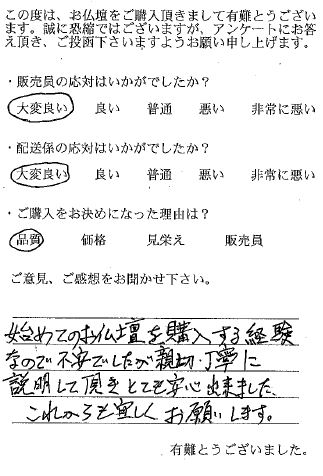 この度は、お仏壇をご購入頂きまして有難とうござい
ます。誠に恐縮ではございますが、アンケートにお答
え頂き、ご投函下さいますようお願い申し上げます。
・販売員の応対はいかがでしたか？
大変良い 良い 普通 悪い 非常に悪い
・配送係の応対はいかがでしたか？
大変良い 良い 普通 悪い 非常に悪い
・ご購入をお決めになった理由は？
品質 価格 見栄え 販売員
ご意見、ご感想をお聞かせ下さい。
始めてのお仏壇を購入する経験
なので不安でしたが親切・丁寧に
説明して頂きとても安心出来ました。
これからも宜しくお願いします。
有難とうございました。